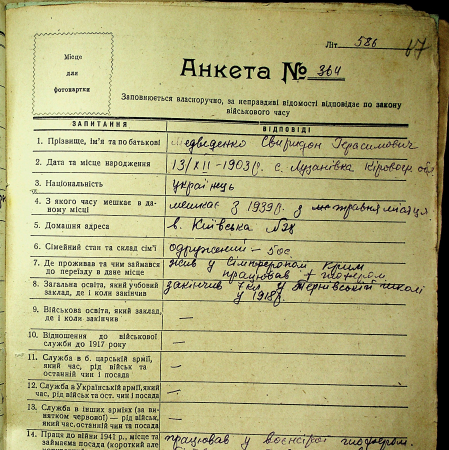 Літ. 586 17
Місце
для
фотокартки
Анкета № 364
Заповнюється власноручно, за неправдиві відомості відповідає по закону
військового часу
ЗАПИТАННЯ ВІДПОВІДІ
1. Прізвище, ім'я та по батькові Медведенко Свиридон Герасимович
2. Дата та місце народження 13/XII-1903р. с. Лузанівка Кіровогр. обл
3. Національність українець
4. З якого часу мешкає в да-
ному місці мешкає з 1939р. з травня місяця
5. Домашня адреса в. Київська №
6. Сімейний стан та склад сім'ї одружений – 5 ос.
7. Де проживав та чим займався
до переїзду в дане місце жив у Сімферополі Крим
працював
8. Загальна освіта, який учбовий
заклад, де і коли закінчив закінчив 7 кл. у школі
у 1918р.
9. Військова освіта, який заклад,
де і коли закінчив —
10. Відношення до військової
служби до 1917 року —
11. Служба в б. царській армії,
який час, рід військ та
останній чин і посада —
12. Служба в Українській армії, який
час, рід військ та ост. чин і посада —
13. Служба в інших арміях (за ви-
нятком червоної) — рід військ,
який час, останній чин та посада —
14. Праця до війни 1941 р., місце та
займаєма посада (короткий але працював у